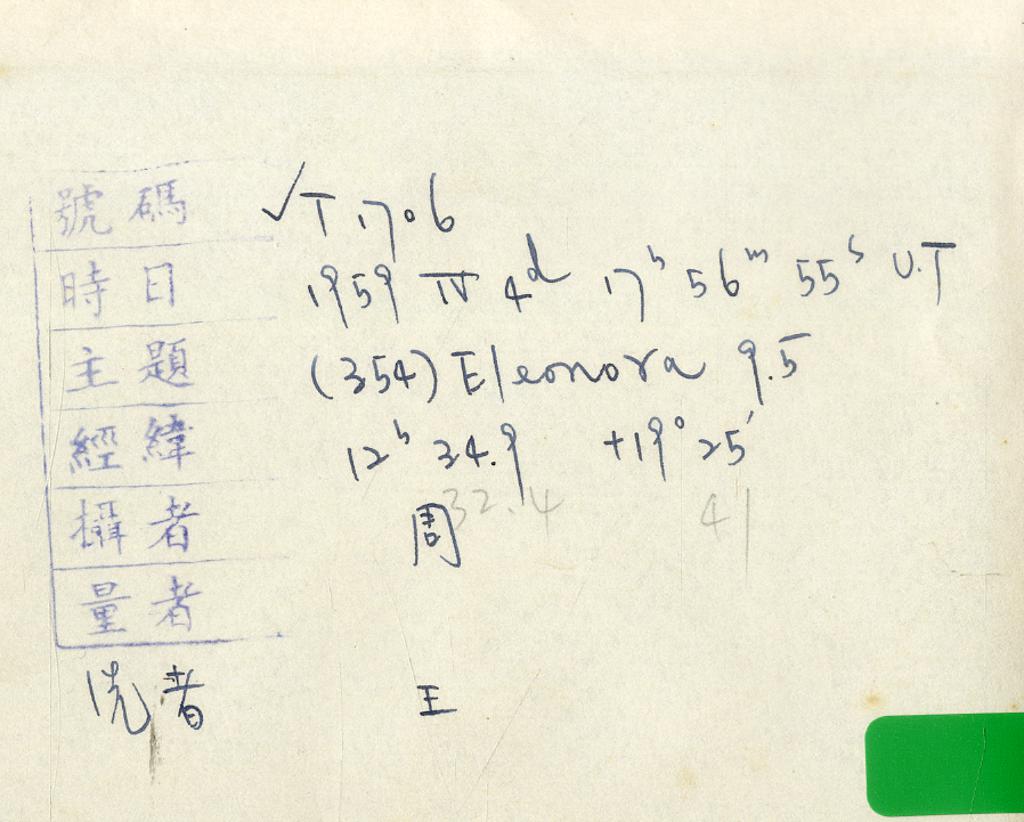 號碼 ✓T 1706
時日 1959 IV 4d 17h 56m 55s U.T
主題 (354) Eleonora 9.5
經緯 12h 34.9 +19° 25′
32.4 41
攝者 周
量者
洗者 王